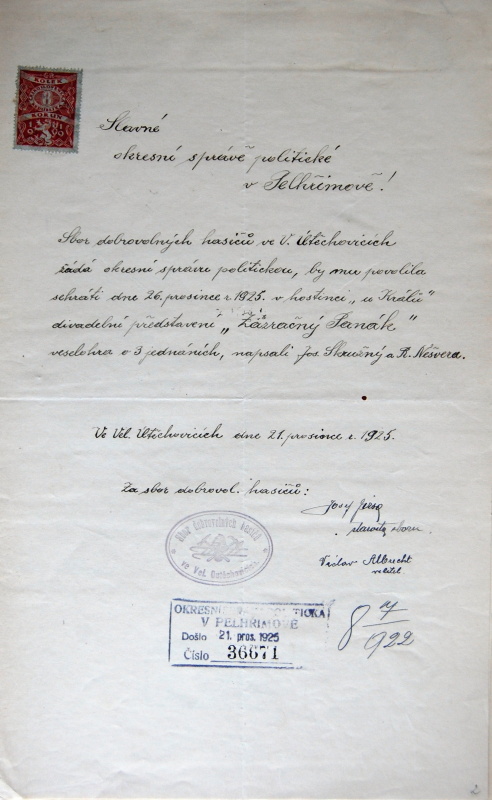 KOLEK
8
KORUN
1919
Slavné
okresní správě politické
v Pelhřimově!
Sbor dobrovolných hasičů ve V. Útěchovicích
žádá okresní správu politickou, by mu povolila
sehráti dne 26. prosince r. 1925. v hostinci „u Králů"
divadelní představení „Zázračný Panák"
veselohra o 3 jednáních, napsali Jos. Skružný a R. Nešvera.
Ve Vel. Útěchovicích dne 21. prosince r. 1925.
Za sbor dobrovol. hasičů:
Josef
starosta sboru.
Václav Albrecht
velitel
Sbor dobrovolných hasičů
ve Vel. Outěchovicích
OKRESNÍ SPRÁVA POLITICKÁ
V PELHŘIMOVĚ
Došlo 21. pros. 1925
Číslo 36671
8 7/922
2